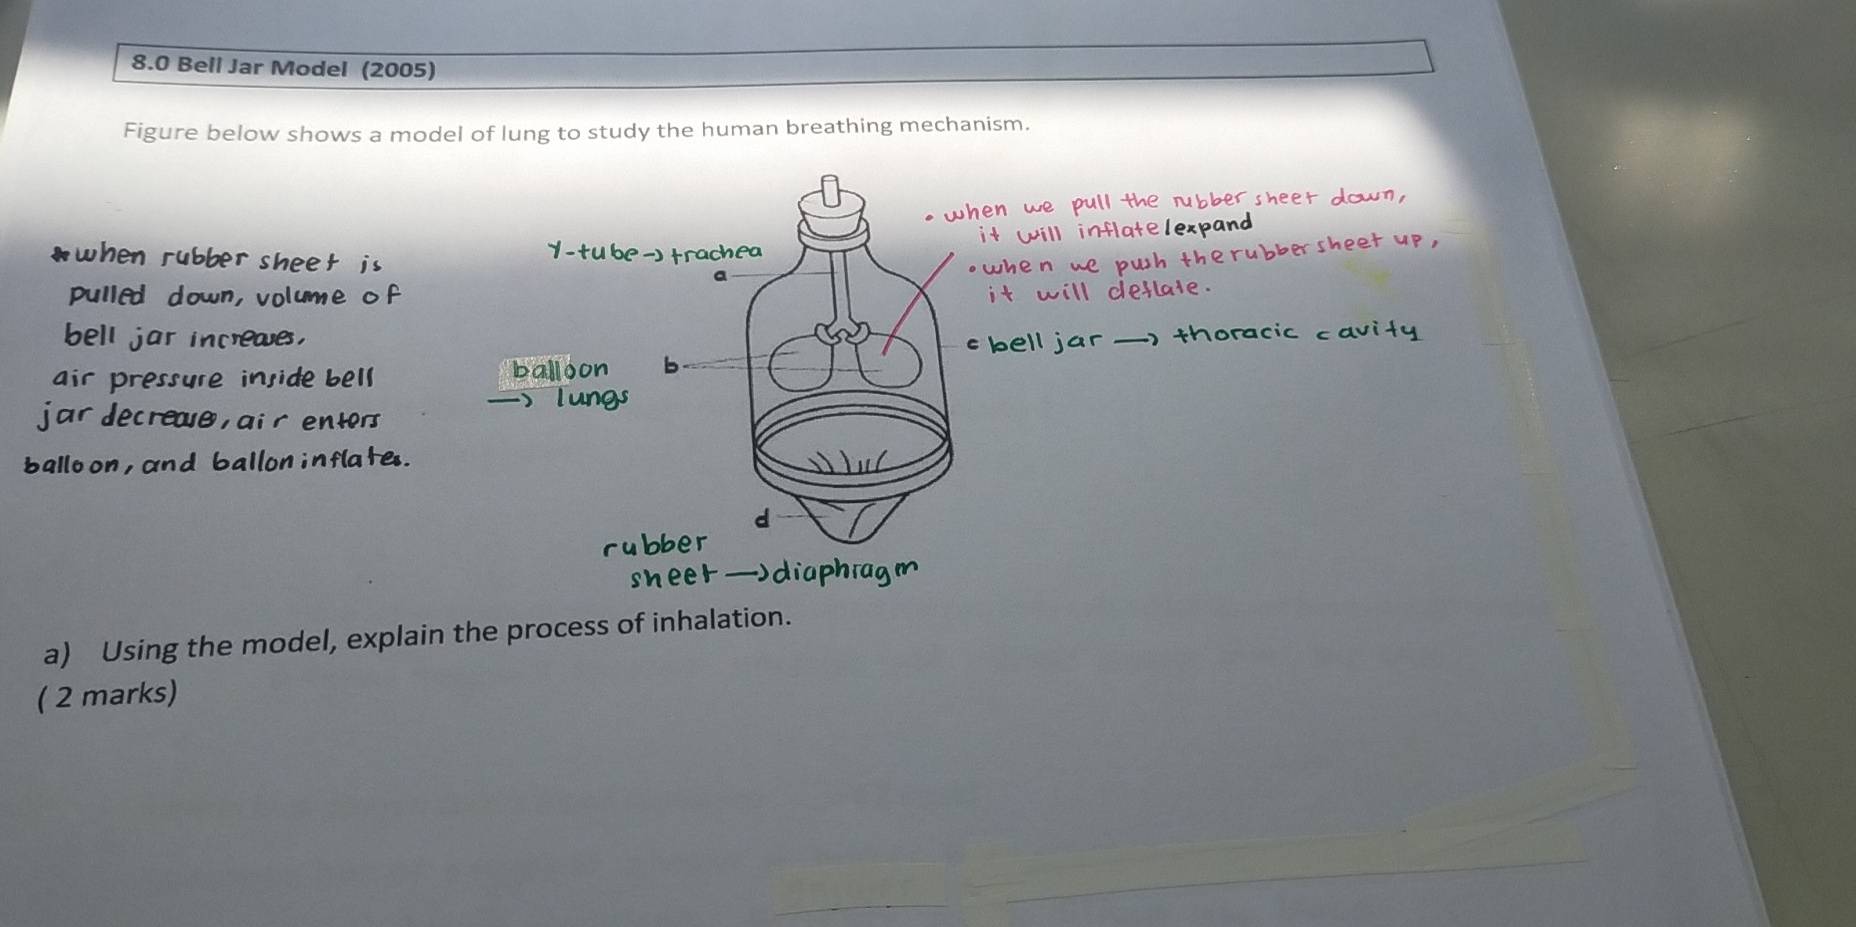 8.0 Bell Jar Model (2005)
Figure below shows a model of lung to study the human breathing mechanism.
• when we pull the rubber sheet down,
it will inflate/expand
• when we push the rubber sheet up,
it will deflate.
* when rubber sheet is
pulled down, volume of
bell jar increases,
air pressure inside bell
jar decrease, air enters
balloon, and ballon inflates.
Y-tube → trachea
a
c bell jar → thoracic cavity
balloon
→ lungs
b
d
rubber
sheet → diaphragm
a) Using the model, explain the process of inhalation.
( 2 marks)